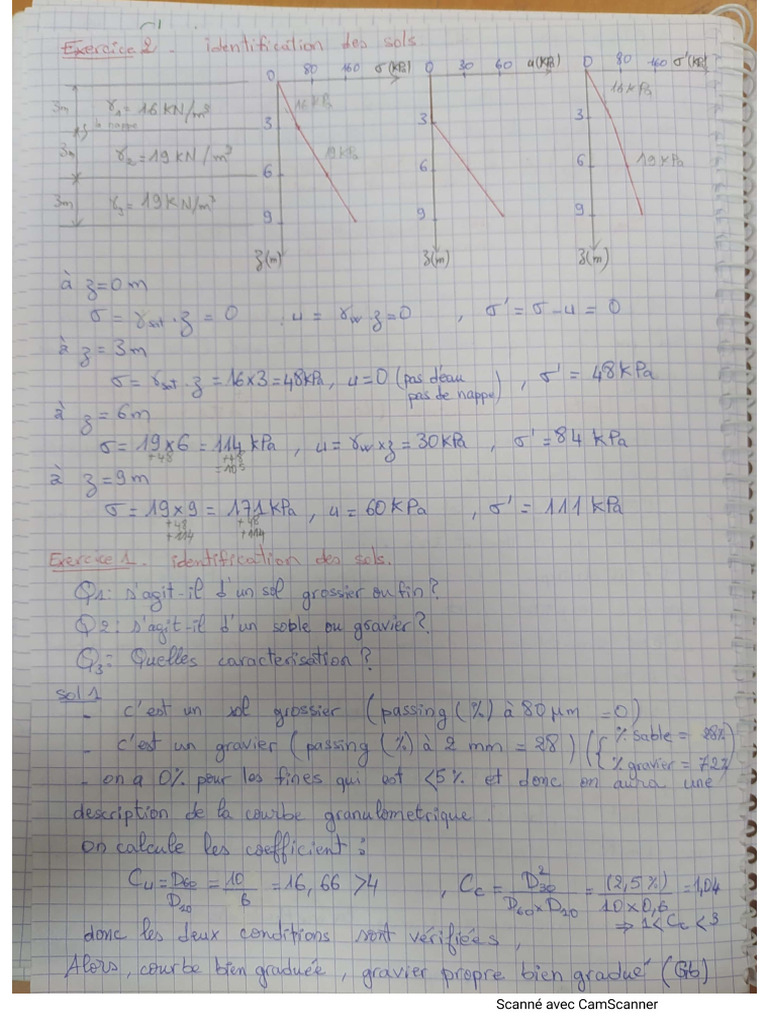 Exercice 2. identification des sols
0 80 160 σ(KPa) 0 30 60 u(KPa) 0 80 160 σ'(KPa)
3m γ1 = 16 KN/m³ 16 KPa 16 KPa
la nappe 3 3 3
3m γ2 = 19 KN/m³ 19 KPa 19 KPa
6 6 6
3m γ3 = 19 KN/m³
9 9 9
z(m) z(m) z(m)
à z=0m
σ = γsat . z = 0 , u = γw . z = 0 , σ' = σ - u = 0
à z = 3m
σ = γsat . z = 16x3 = 48kPa, u=0 (pas d'eau pas de nappe) , σ' = 48KPa
à z = 6m
σ = 19x6 = 114 kPa , u = γw x z = 30KPa , σ' = 84 KPa
+48 +48
à z = 9m
σ = 19x9 = 171 KPa, u = 60KPa , σ' = 111KPa
+48 +48
+114 +114
Exercice 1. identification des sols.
Q1: s'agit-il d'un sol grossier ou fin?
Q2: s'agit-il d'un soble ou gravier?
Q3= Quelles caracterisation?
sol 1
- c'est un sol grossier (passing (%) à 80 µm = 0)
- c'est un gravier (passing (%) à 2 mm = 28) ({ % sable = 28%
% gravier = 72%
- on a 0% pour les fines qui est <5% et donc on aura une
description de la courbe granulometrique.
on calcule les coefficient :
Cu = D60/D10 = 10/6 = 16,66 >4 , Cc = D30²/D60xD10 = (2,5%)/10x0,6 = 1,04
⇒ 1< Cc <3
donc les deux conditions sont vérifiées,
Alors, courbe bien graduée, gravier propre bien gradué (Gb)
Scanné avec CamScanner